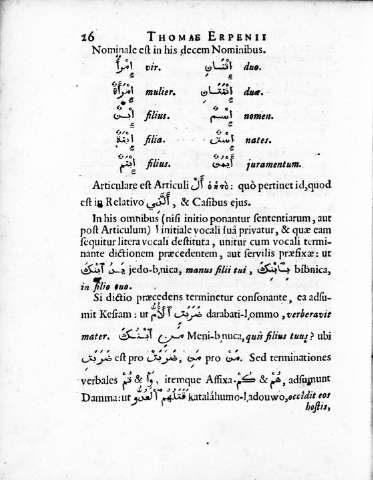 26 THOMAE ERPENII
Nominale est in his decem Nominibus.
اِمْرَأٌ vir. اِثْنَانِ duo.
اِمْرَأَةٌ mulier. اِثْنَتَانِ duæ.
اِبْنٌ filius. اِسْمٌ nomen.
اِبْنَةٌ filia. اِسْتٌ nates.
اِبْنُمٌ filius. اَيْمُنٌ juramentum.
Articulare est Articuli اَلْ : quò pertinet id, quod
est in Relativo اَلَّذِي, & Casibus ejus.
In his omnibus (nisi initio ponantur sententiarum, aut
post Articulum) ا initiale vocali suâ privatur, & quæ eam
sequitur litera vocali destituta, unitur cum vocali termi-
nante dictionem præcedentem, aut servilis præfixæ: ut
يَدُ اَبْنِكَ jedo-bnica, manus filii tui, بِابْنِكَ bibnica,
in filio tuo.
Si dictio præcedens terminetur consonante, ea adsu-
mit Kesram: ut ضَرَبَتِ الْأُمُّ darabati-lommo, verberavit
mater. مَنِ اَبْنُكَ Meni-bnuca, quis filius tuus? ubi
ضَرَبَتِ est pro ضَرَبَتْ, مَنِ pro مَنْ. Sed terminationes
verbales تُمْ & وْا, itemque Affixa كُمْ & هُمْ, adsumunt
Damma: ut قَتَلَهُمُ الْعَدُوُّ katalahumo-ladouwo, occidit eos
hostis,